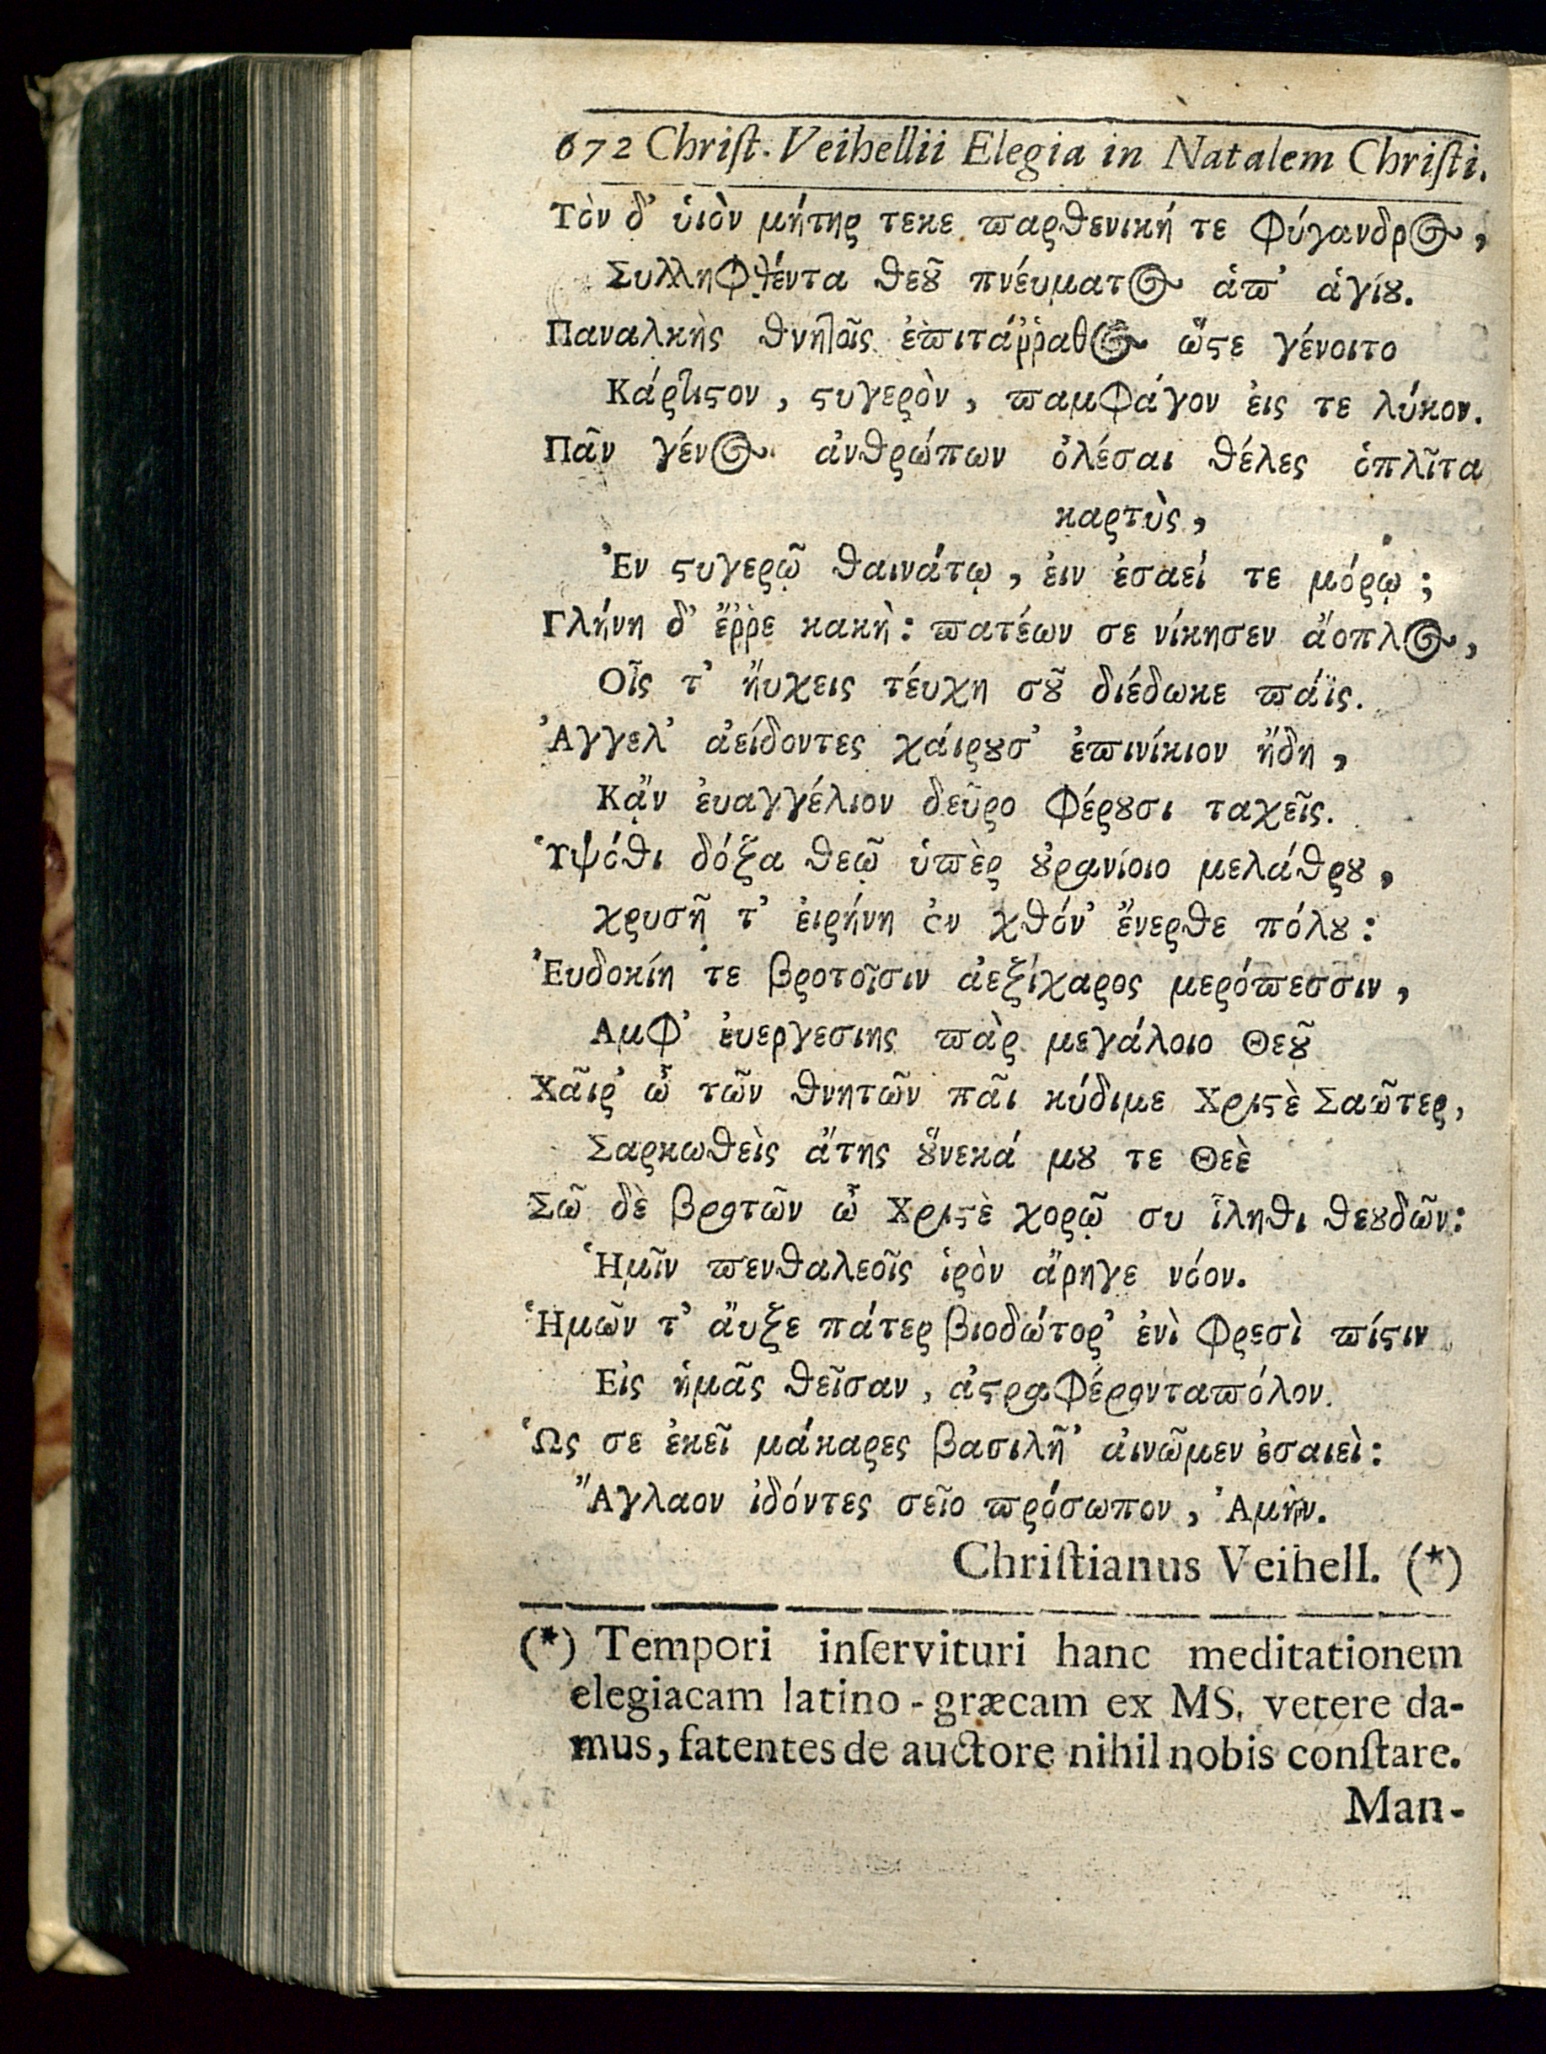 672 Chriſt. Veihellii Elegia in Natalem Chriſti.
Τὸν δ' ὑιὸν μήτηρ τεκε παρθενική τε φύγανδρος,
Συλληφθέντα θεȣ͂ πνέυματος ἀπ' ἁγίȣ.
Παναλκὴς θνητοῖς ἐπιτάῤῥαθος ὥϛε γένοιτο
Κάρτιϛον, ϛυγερὸν, παμφάγον ἐις τε λύκον.
Πᾶν γένος ἀνθρώπων ὀλέσαι θέλες ὁπλῖτα
καρτὺς,
Ἐν ϛυγερῷ θαινάτῳ, ἐιν ἐσαεί τε μόρῳ;
Γλήνη δ' ἔῤῥε κακὴ: πατέων σε νίκησεν ἄοπλος,
Οἷς τ' ἤυχεις τέυχη σȣ͂ διέδωκε πάϊς.
Ἀγγελ' ἀείδοντες χάιρȣσ' ἐπινίκιον ἤδη,
Κᾂν ἐυαγγέλιον δεῦρο φέρȣσι ταχεῖς.
Ὑψόθι δόξα θεῷ ὑπὲρ ȣ̓ρανίοιο μελάθρȣ,
χρυσῆ τ' ἐιρήνη ἐν χθόν' ἔνερθε πόλȣ:
Ἐυδοκίη τε βροτοῖσιν ἀεξίχαρος μερόπεσσιν,
Αμφ' ἐυεργεσιης πὰρ μεγάλοιο Θεȣ͂
Χᾶιρ' ὦ τῶν θνητῶν πᾶι κύδιμε Χριϛὲ Σαῶτερ,
Σαρκωθεὶς ἄτης ȣ̔́νεκά μȣ τε Θεὲ
Σῶ δὲ βροτῶν ὦ Χριϛὲ χορῷ συ ἵληθι θεȣδῶν:
Ἡμῖν πενθαλεοῖς ἱρὸν ἄρηγε νόον.
Ἡμῶν τ' ἄυξε πάτερ βιοδώτορ' ἐνὶ φρεσὶ πίϛιν
Εἰς ἡμᾶς θεῖσαν, ἀϛραφέρονταπόλον.
Ὡς σε ἐκεῖ μάκαρες βασιλῆ' ἀινῶμεν ἐσαιεὶ:
Ἄγλαον ἰδόντες σεῖο πρόσωπον, Ἀμὴν.
Chriſtianus Veihell. (*)
(*) Tempori inſervituri hanc meditationem
elegiacam latino-græcam ex MS. vetere da-
mus, fatentes de auctore nihil nobis conſtare.
Man-